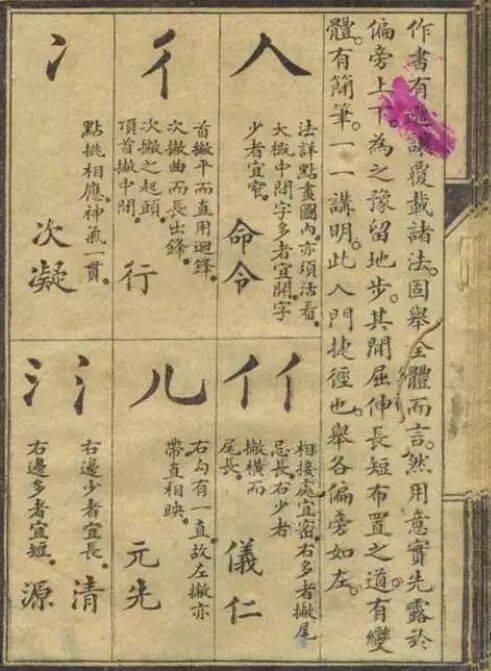 作書有避讓覆載諸法。固舉全體而言。然用意實先露於
偏旁上下。為之豫留地步。其閒屈伸長短布置之道。有變
體。有簡筆。一一講明。此入門捷徑也。舉各偏旁如左。
人
法詳點畫圖內。亦須活看。
大概中閒字多者宜開。字
少者宜窄。
命令
彳
首撇平而直用迴鋒。
次撇曲而長出鋒。
次撇之起頭。
頂首撇中閒。
行
冫
點挑相應。神氣一貫。
次凝
亻亻
相接處宜密。右多者撇尾
忌長。右少者
撇橫而
尾長。
儀仁
儿
右勾有一直。故左撇亦
帶直相映。
元先
氵氵
右邊少者宜長。
清
右邊多者宜短。
源